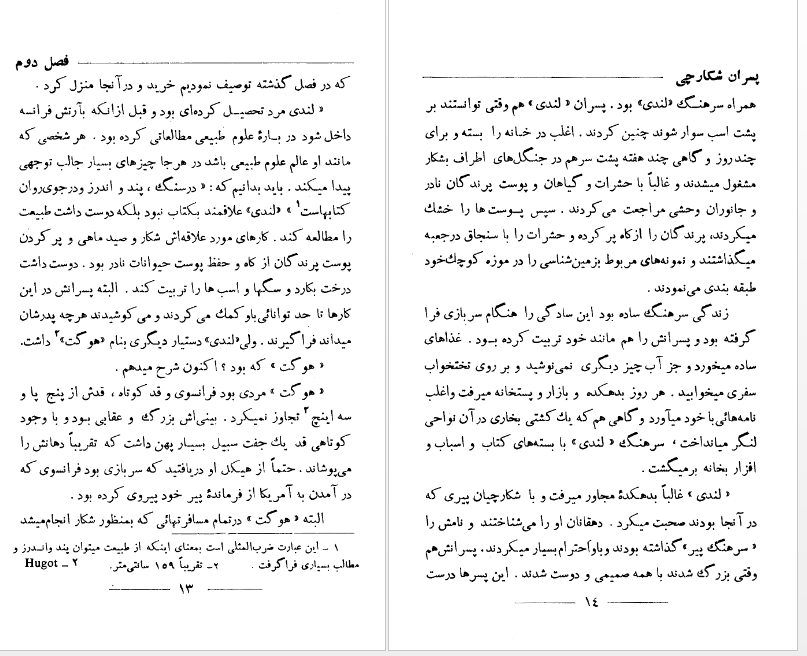 فصل دوم
که در فصل گذشته توصیف نمودیم خرید و درآنجا منزل کرد .
« لندی مرد تحصیل کرده‌ای بود و قبل ازانکه بآرتش فرانسه
داخل شود در بارهٔ علوم طبیعی مطالعاتی کرده بود . هر شخصی که
مانند او عالم علوم طبیعی باشد در هرجا چیزهای بسیار جالب توجهی
پیدا میکند . باید بدانیم که : « درسنگ ، پند و اندرز ودرجوی‌روان
کتابهاست۱ » «لندی» علاقمند بکتاب نبود بلکه دوست داشت طبیعت
را مطالعه کند . کارهای مورد علاقه‌اش شکار و صید ماهی و پر کردن
پوست پرندگان از کاه و حفظ پوست حیوانات نادر بود . دوست داشت
درخت بکارد و سگها و اسب ها را تربیت کند . البته پسرانش در این
کارها تا حد توانائی‌باوکمک می‌کردند و می‌کوشیدند هرچه پدرشان
میداند فراگیرند . ولی«لندی» دستیار دیگری بنام «هوگت»۲ داشت.
« هوگت » که بود ؟ اکنون شرح میدهم .
« هوگت » مردی بود فرانسوی و قد کوتاه ، قدش از پنج پا و
سه اینچ۳ تجاوز نمیکرد . بینی‌اش بزرگ و عقابی بود و با وجود
کوتاهی قد یک جفت سبیل بسیار پهن داشت که تقریباً دهانش را
می‌پوشاند . حتماً از هیکل او دریافتید که سربازی بود فرانسوی که
در آمدن به آمریکا از فرماندهٔ پیر خود پیروی کرده بود .
البته « هوگت » درتمام مسافرتهائی که بمنظور شکار انجام‌میشد
۱ – این عبارت ضرب‌المثلی است بمعنای اینکه از طبیعت میتوان پند واندرز و
مطالب بسیاری فراگرفت . ۲ــ تقریباً ۱۵۹ سانتی‌متر. ۲ – Hugot
۱۳
پسران شکارچی
همراه سرهنگ «لندی» بود . پسران « لندی» هم وقتی توانستند بر
پشت اسب سوار شوند چنین کردند . اغلب در خانه را بسته و برای
چندروز و گاهی چند هفته پشت سرهم در جنگل‌های اطراف بشکار
مشغول میشدند و غالباً با حشرات و گیاهان و پوست پرندگان نادر
و جانوران وحشی مراجعت می‌کردند . سپس پوست ها را خشک
میکردند، پرندگان را ازکاه پر کرده و حشرات را با سنجاق درجعبه
میگذاشتند و نمونه‌های مربوط بزمین‌شناسی را در موزه کوچک‌خود
طبقه بندی می‌نمودند .
زندگی سرهنگ ساده بود این سادگی را هنگام سربازی فرا
گرفته بود و پسرانش را هم مانند خود تربیت کرده بود . غذاهای
ساده میخورد و جز آب چیز دیگری نمی‌نوشید و بر روی تختخواب
سفری میخوابید . هر روز بدهکده و بازار و پستخانه میرفت واغلب
نامه‌هائی‌با خود میآورد و گاهی هم که یک کشتی بخاری در آن نواحی
لنگر میانداخت ، سرهنگ « لندی » با بسته‌های کتاب و اسباب و
افزار بخانه برمیگشت .
« لندی » غالباً بدهکدهٔ مجاور میرفت و با شکارچیان پیری که
در آنجا بودند صحبت میکرد . دهقانان او را می‌شناختند و نامش را
« سرهنگ پیر» گذاشته بودند وباواحترام‌بسیار میکردند. پسرانش‌هم
وقتی بزرگ شدند با همه صمیمی و دوست شدند . این پسرها درست
۱٤